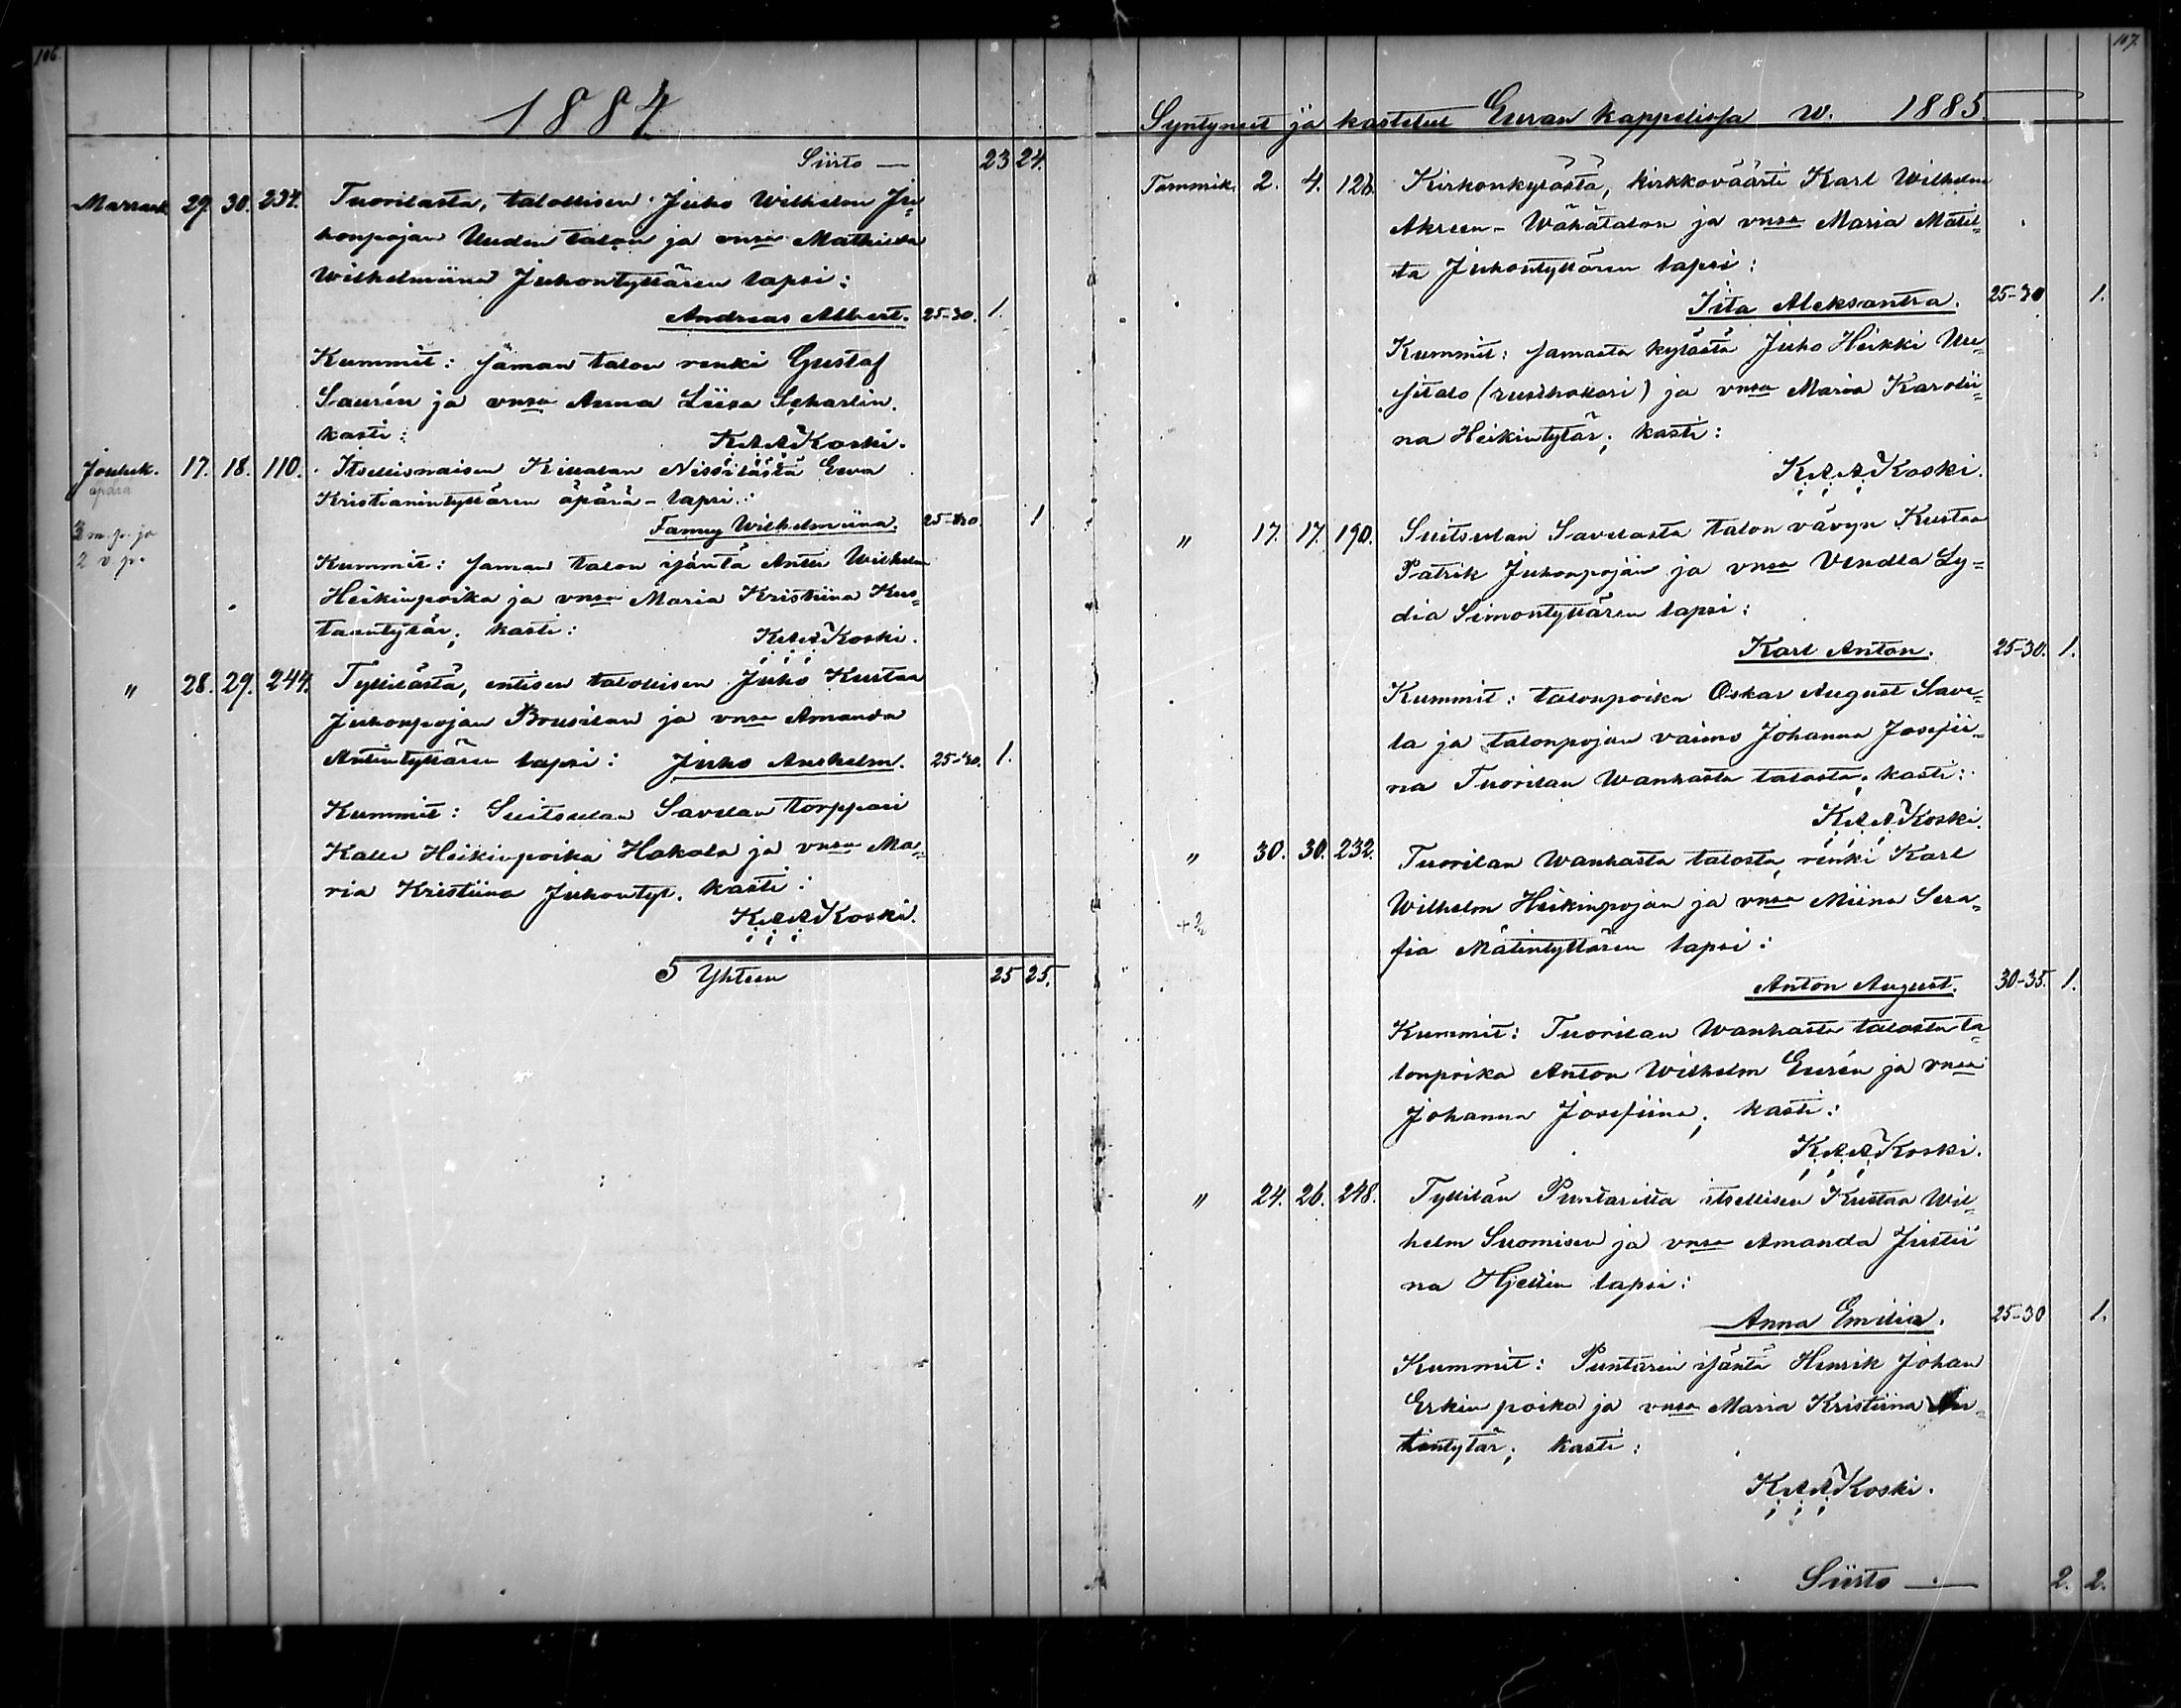 106.
1884
Siirto — 23 24.
Marrask. 29. 30. 234. Tuorilasta, talollisen Juho Wilhelm Ju-
honpojan Uuden talon ja vnsa Mathilda
Wilhelmiina Juhontyttären lapsi:
Andreas Albert. 25-30. 1.
Kummit: saman talon renki Gustaf
Saurén ja vnsa Anna Liisa Scharlin.
kasti: K. A. A. Koski.
Jouluk. 17. 18. 110. Itsellisnaisen Kiukalan Nissilästä Eeva
äpärä
Kristianintyttären äpärä-lapsi:
Fanny Wilhelmiina. 25-30. 1
3 m. p. ja
2 v. p.
Kummit: saman talon isäntä Antti Wilhelm
Heikinpoika ja vnsa Maria Kristiina Kus-
taantytär; kasti: K. A. A. Koski.
" 28. 29. 244. Tyllilästä, entisen talollisen Juho Kustaa
Juhonpojan Brusilan ja vnsa Amanda
Antintyttären lapsi: Juho Anshelm. 25-30. 1.
Kummit: Suitsulan Savelan torppari
Kalle Heikinpoika Hakala ja vnsa Ma-
ria Kristiina Juhontyt. kasti:
K. A. A. Koski.
Yhteen 25 25.
107.
Syntyneet ja kastetut Euran kappelissa w. 1885.
Tammik. 2. 4. 126. Kirkonkylästä, kirkkoväärti Karl Wilhelm
Akreen-Wähätalon ja vnsa Maria Matil-
ta Juhontyttären lapsi:
Iita Aleksantra. 25-30 1.
Kummit: samasta kylästä Juho Heikki Uu-
sitalo (rusthollari) ja vnsa Maria Karolii-
na Heikintytär; kasti:
K. A. A. Koski.
" 17. 17. 190. Suitsulan Savelasta talon vävyn Kustaa
Patrik Juhonpojan ja vnsa Vendla Ly-
dia Simontyttären lapsi:
Karl Anton. 25-30. 1.
Kummit: talonpoika Oskar August Save-
la ja talonpojan vaimo Johanna Josefii-
na Tuorilan Wanhasta talosta; kasti:
K. A. A. Koski.
" 30. 30. 232. Tuorilan Wanhasta talosta, renki Karl
Wilhelm Heikinpojan ja vnsa Miina Sera-
fia Matintyttären lapsi:
Anton August. 30-35. 1.
Kummit: Tuorilan Wanhasta talosta ta-
lonpoika Anton Wilhelm Eurén ja vnsa
Johanna Josefiina; kasti:
K. A. A. Koski.
" 24. 26. 248. Tyllilän Puntarilta itsellisen Kustaa Wil-
helm Suomisen ja vnsa Amanda Justii
na Hjellin lapsi:
Anna Emilia. 25-30 1.
Kummit: Puntarin isäntä Henrik Johan
Erkin poika ja vnsa Maria Kristiina
tintytär; kasti:
K. A. A. Koski.
Siirto — 2. 2.